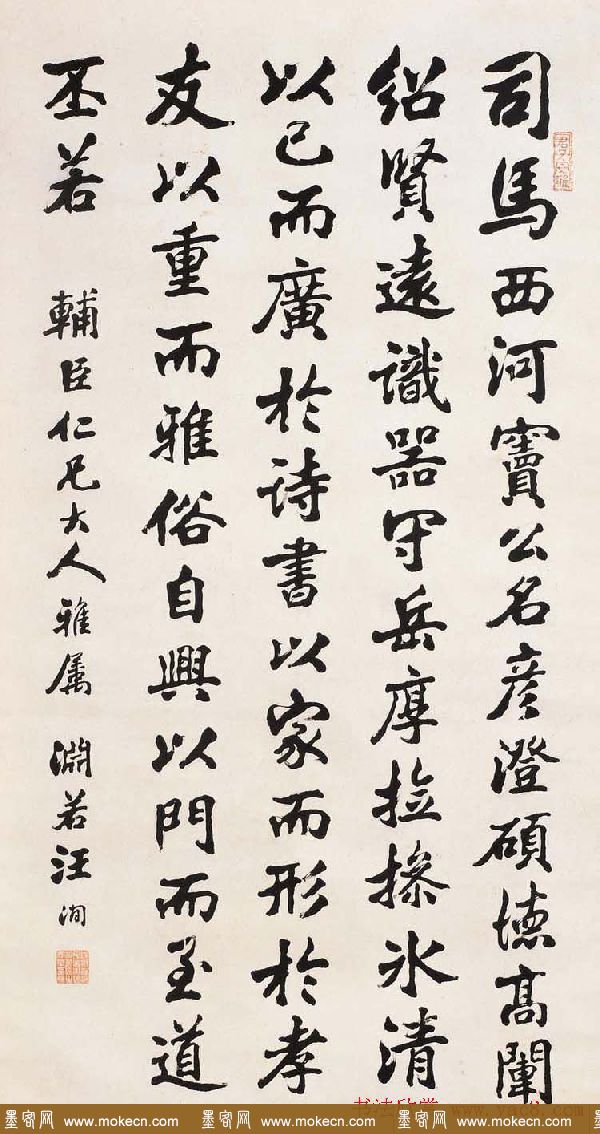 司馬西河竇公名彦澄碩徳高闡
紹賢遠識器守岳厚撿操氷清
以己而廣於詩書以家而形於孝
友以重而雅俗自興以門而至道
丕若
輔臣仁兄大人雅属 淵若汪洵
书法欣赏 www.yac8.com
墨客网 www.mokecn.com 墨客网 www.mokecn.com 墨客网 www.mokecn.com